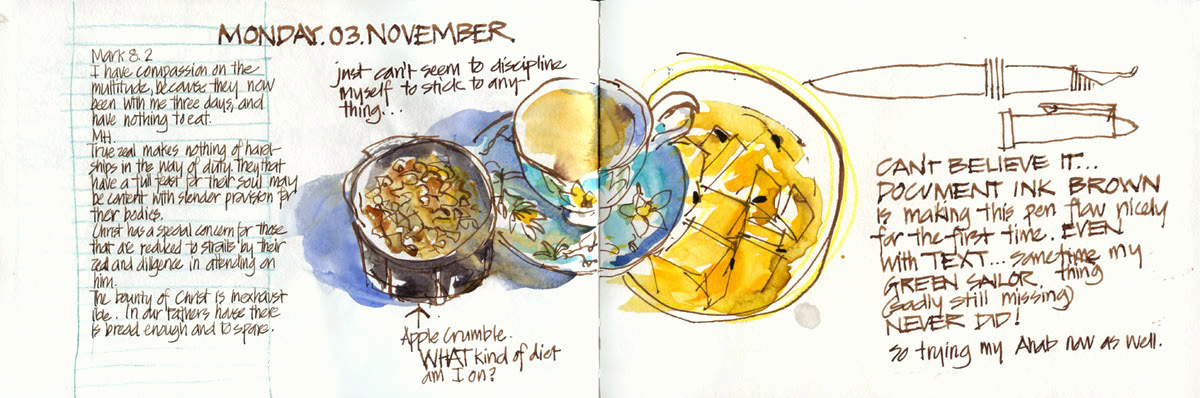 MONDAY.03.NOVEMBER
Mark 8.2
I have compassion on the
multitude, because they now
been with me three days, and
have nothing to eat.
MH.
True zeal makes nothing of hard-
ships in the way of duty. They that
have a full feast for their soul may
be content with slender provision for
their bodies.
Christ has a special concern for those
that are reduced to straits by their
zeal and diligence in attending on
him.
The bounty of Christ is inexhaust
ible. In our Fathers house there
is bread enough and to spare.
just can't seem to discipline
myself to stick to any-
thing...
Apple Crumble.
WHAT kind of diet
am I on?
CANT BELIEVE IT...
DOCUMENT INK BROWN
is making this pen flow nicely
for the first time. EVEN
with TEXT... sometime my
thing
GREEN SAILOR.
(sadly still missing)
NEVER DID!
so trying my Arab now as well.